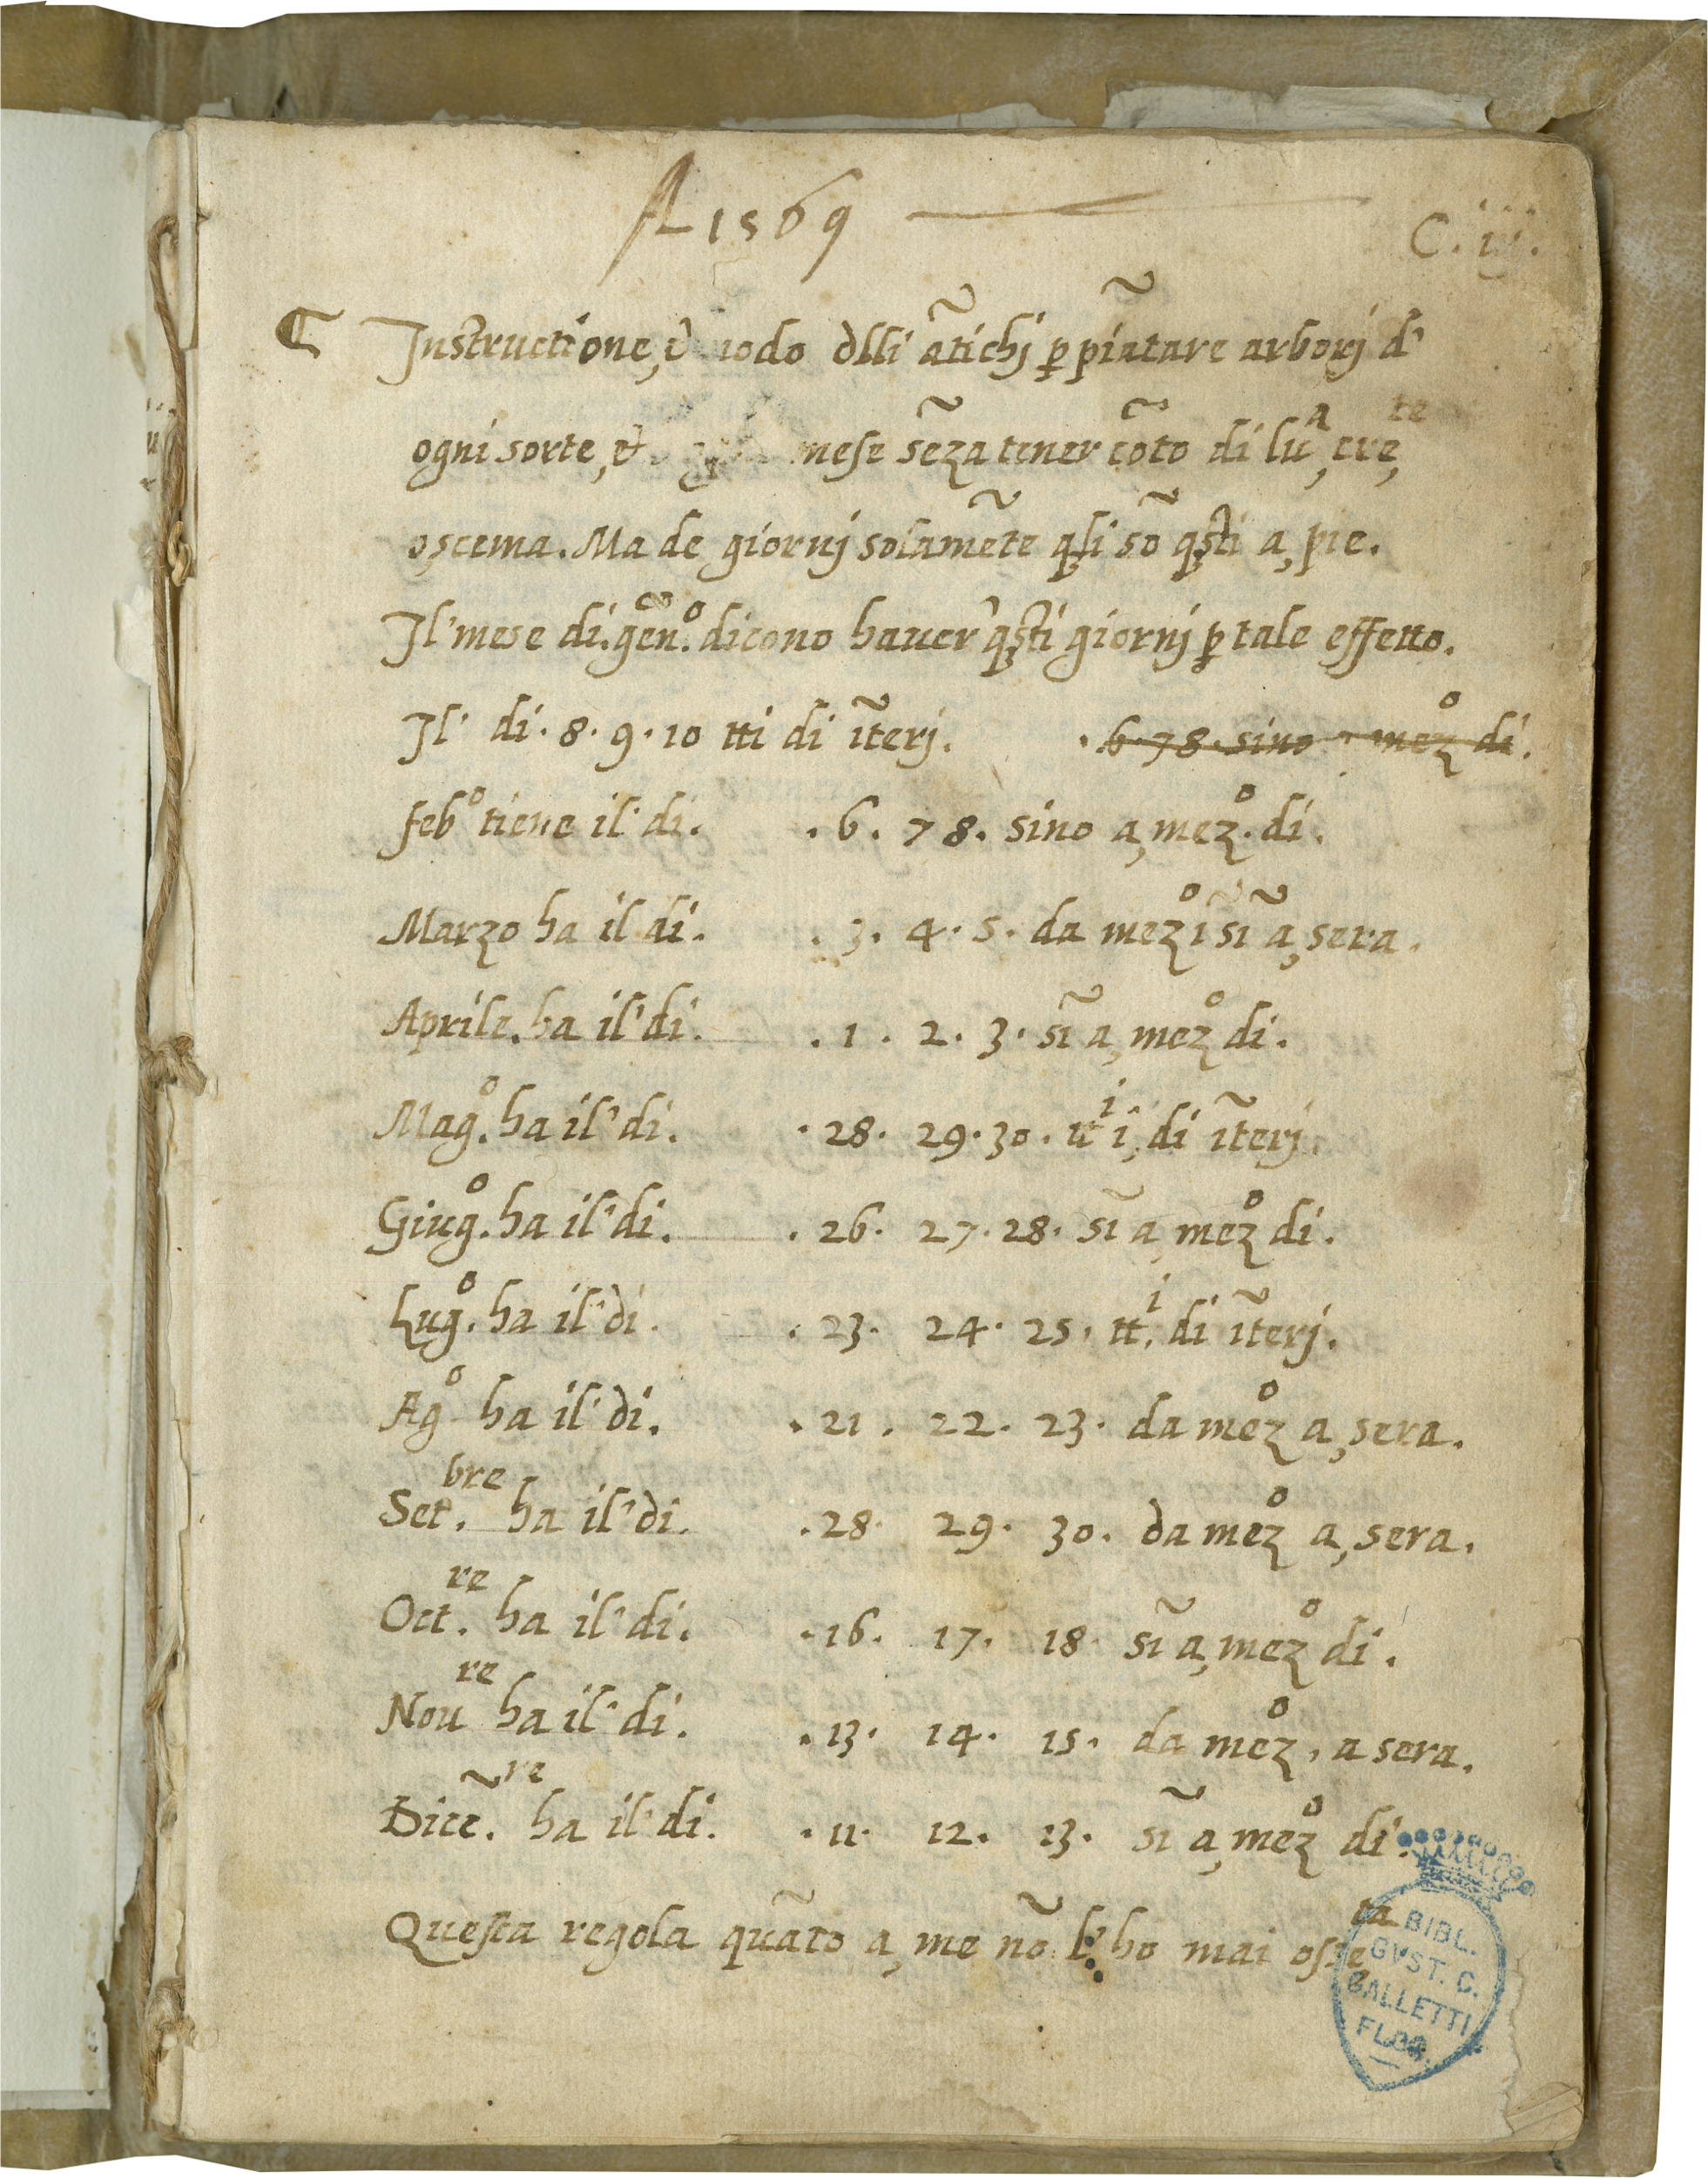 A 1569
C. iij.
Instructione, & modo dlli ãtichj ꝑ piãtare arborj d'
ogni sorte, & mese sẽza tener cõto di luᵃ, cre,ᵗᵉ
o, scema. Ma de giornj solamẽte qli sõ qsti a, pie.
Il' mese di. gẽn.º dicono hauer' qsti giornj ꝑ tale effetto.
Il' di. 8. 9. 10 tti di ĩterj. . 6. 7 8. sino a mezº di.
febº tiene il' di. . 6. 7 8. sino a, mezº. di.
Marzo ha il di. . 3. 4. 5. da mezº ĩ sĩ a, sera.
Aprile. ha il' di. . 1. 2. 3. sĩ a, mezº di.
Magº. ha il' di. . 28. 29. 30. di ĩterj.
Giugº. ha il' di. . 26. 27. 28. sĩ a, mezº di.
Lugº. ha il' di. . 23. 24. 25. ttⁱ. di ĩterj.
Agº ha il' di. . 21. 22. 23. da mezº a, sera.
Set.bre ha il' di. . 28. 29. 30. da mezº a, sera.
Oct.re ha il' di. . 16. 17. 18. sĩ a, mezº di.
Noure ha il' di. . 13. 14. 15. da mezº, a sera.
Dicẽ.re ha il' di. . 11. 12. 13. sĩ a, mezº di.
Questa regola quãto a, me nõ l' ho mai osseta
BIBL.
GVST. C.
GALLETTI
FLOR.